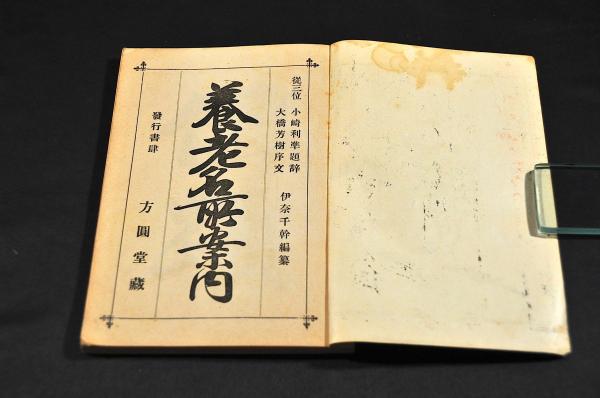 從三位 小崎利準題辞
大橋芳樹序文
伊奈千幹編纂
養老名所案内
發行書肆 方圓堂藏